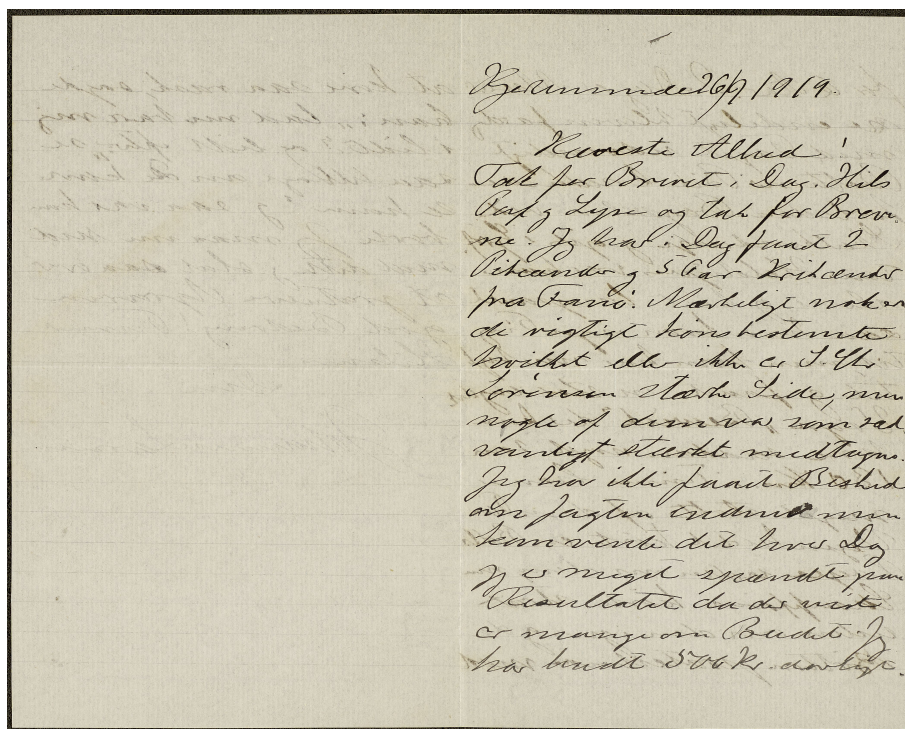 Kjerteminde 26/9 1919.
Kæreste Alhed!
Tak for Brevet i Dag. Hils
Puf og Lysse og tak for Breve-
ne. Jeg har i Dag faaet 2
Pibeænder og 5 Par Krikænder
fra Fanø. Mærkeligt nok er
de rigtigt kønsbestemte
hvilket ellers ikke er S. Chr
Sørensen stærke Side, men
nogle af dem var som sæd
vanligt stærkt medtagne.
Jeg har ikke faaet Besked
om Jagten endnu men
kan vente det hver Dag
Jeg er meget spændt paa
Resultatet da der vist
er mange om Budet. Jeg
har budt 500 Kr. aarligt.